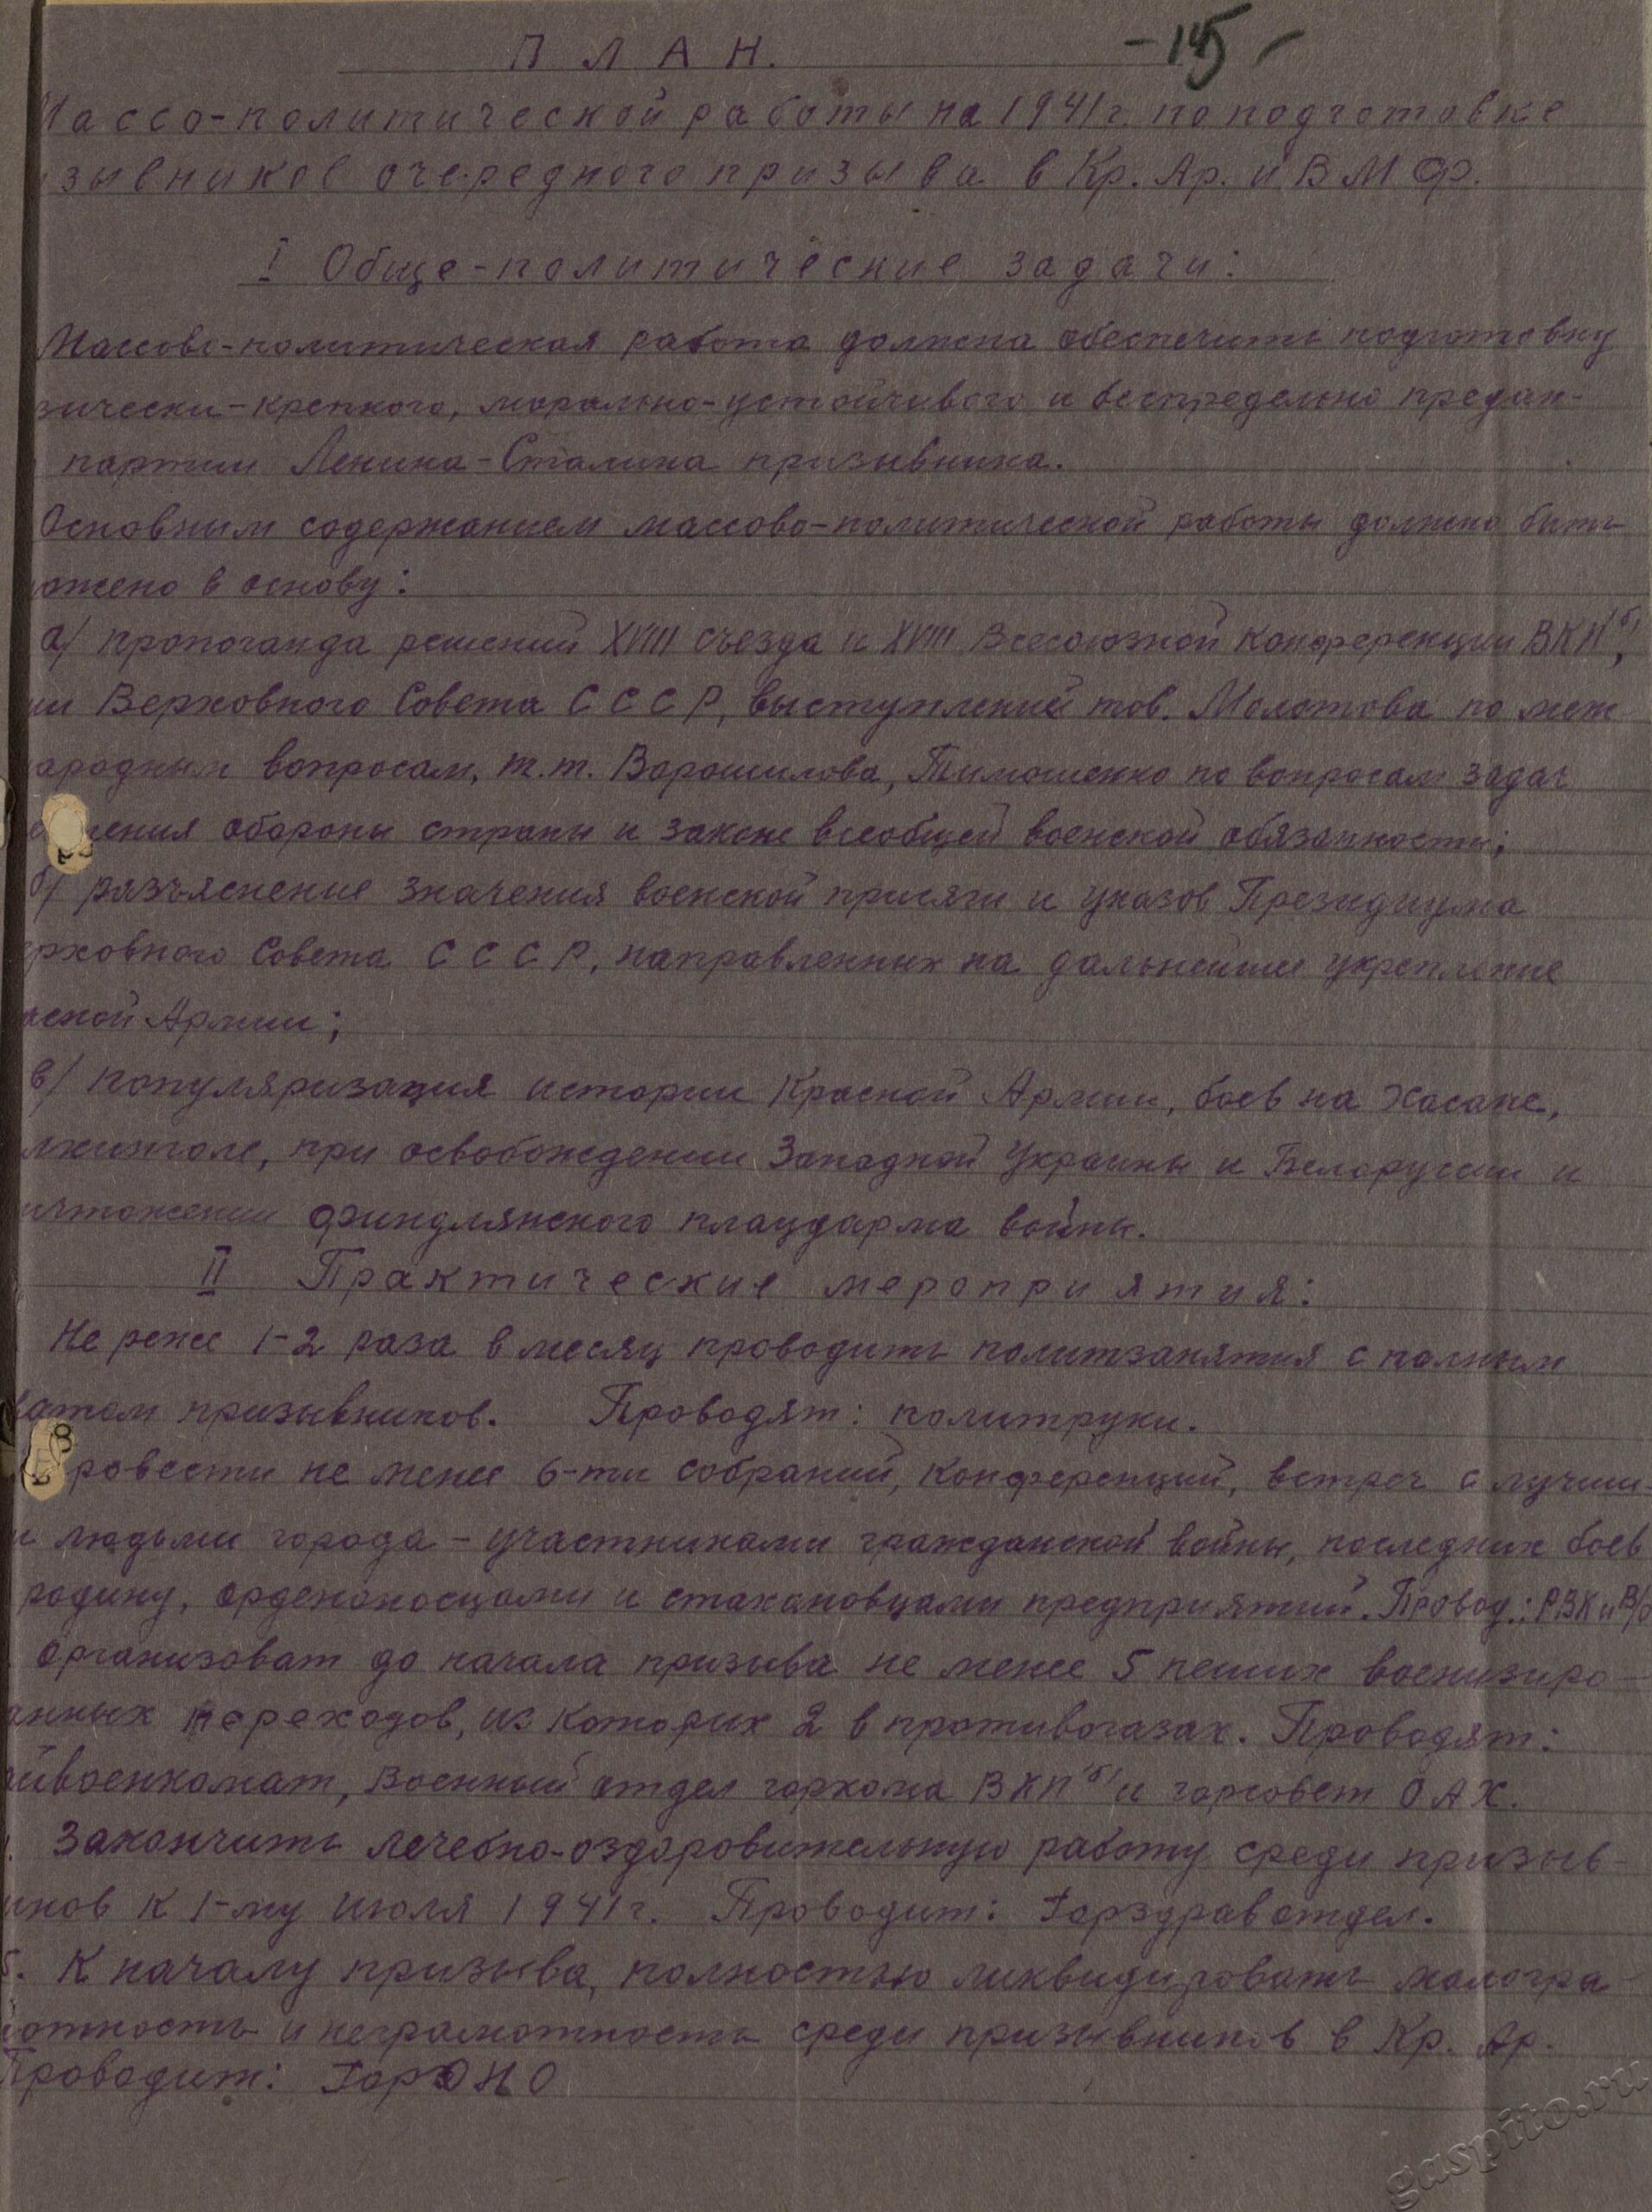 ПЛАН. -145-
Массо-политической работы на 1941г. по подготовке
зывников очередного призыва в Кр. Ар. и ВМФ.
I Обще-политические задачи:
Массово-политическая работа должна обеспечить подготовку
зически-крепкого, морально-устойчивого и беспредельно предан-
партии Ленина-Сталина призывника.
Основным содержанием массово-политической работы должно быть
ожено в основу:
а/ пропоганда решений XVIII съезда и XVIII Всесоюзной конференции ВКП/б/,
ии Верховного Совета СССР, выступлений тов. Молотова по меж
ародным вопросам, т.т. Ворошилова, Тимошенко по вопросам задач
ения обороны страны и законе всеобщей военской обязанности;
б/ разъяснение значения военской присяги и указов Президиума
рховного Совета СССР, направленных на дальнейшее укрепление
асной Армии;
в/ популяризация истории Красной Армии, боев на Хасане,
лхинголе, при освобождении Западной Украины и Белоруссии и
ичтожении финдлянского плацдарма войны.
II Практические мероприятия:
Не реже 1-2 раза в месяц проводить политзанятия с полным
ватом призывников. Проводят: политруки.
ровести не менее 6-ти собраний, конференций, встреч с лучши-
и людьми города - участниками гражданской войны, последних боев
родину, орденоносцами и стахановцами предприятий. Провод.: РВК и В/о
организоват до начала призыва не менее 5 пеших военизиро-
анных переходов, из которых 2 в противогазах. Проводят:
айвоенкомат, военный отдел горкома ВКП/б/ и горсовет ОАХ.
. Закончить лечебно-оздоровительную работу среди призыв-
иков к 1-му июля 1941г. Проводит: Горздравотдел.
5. К началу призыва, полностью ликвидировать малогра-
мотность и неграмотность среди призывников в Кр. Ар.
Проводит: ГорОНО
gaspito.ru